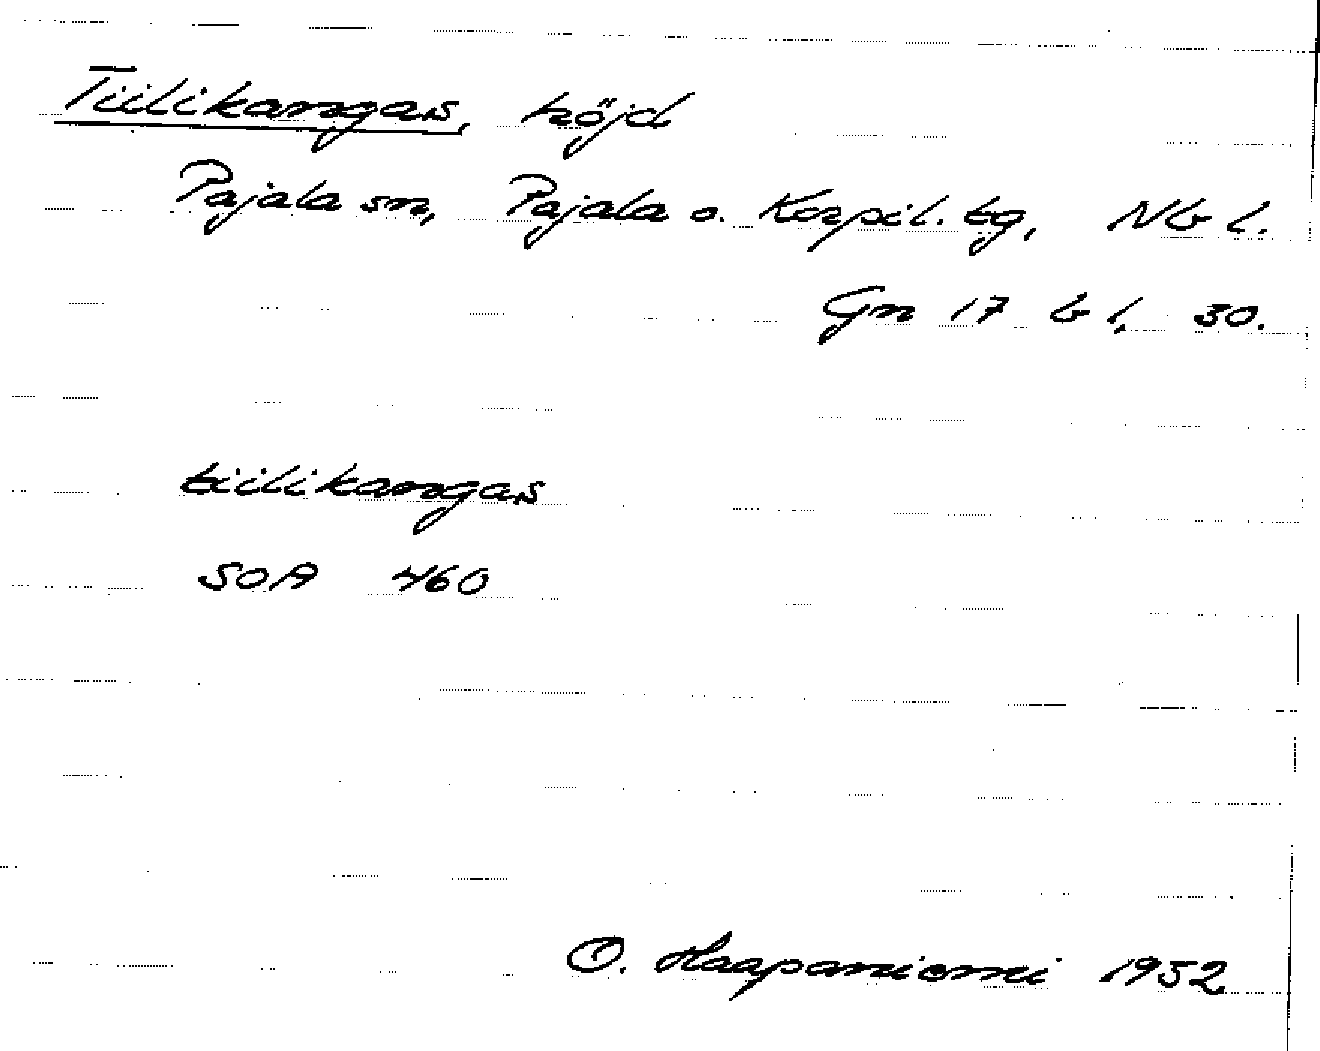 Tiilikangas, höjd
Pajala sn, Pajala o. Korpil. tg, Nb l.
Gn 17 b l, 30.
tiilikangas
SOA 460
O. Haapaniemi 1952